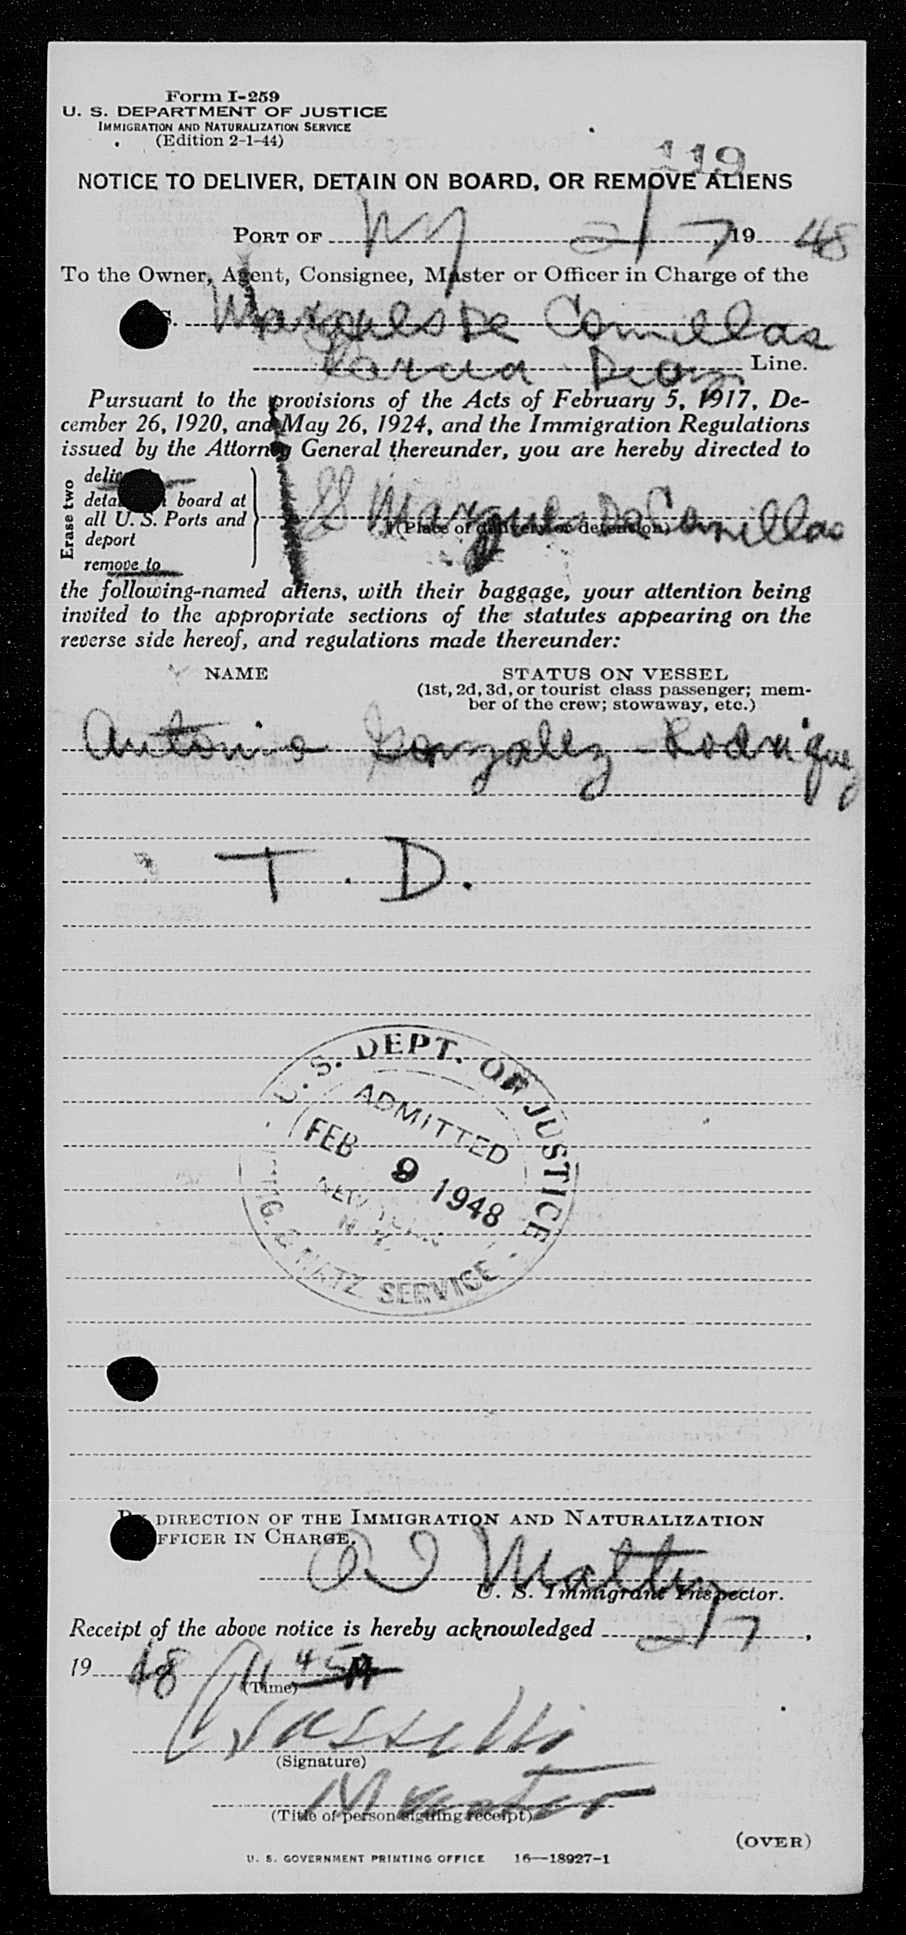 Form I-259
U. S. DEPARTMENT OF JUSTICE
IMMIGRATION AND NATURALIZATION SERVICE
(Edition 2-1-44)
119
NOTICE TO DELIVER, DETAIN ON BOARD, OR REMOVE ALIENS
PORT OF NY 2/7, 19 48
To the Owner, Agent, Consignee, Master or Officer in Charge of the
S. Marques De Comillas
Garcia Diaz Line.
Pursuant to the provisions of the Acts of February 5, 1917, De-
cember 26, 1920, and May 26, 1924, and the Immigration Regulations
issued by the Attorney General thereunder, you are hereby directed to
Erase two
deliver
detain board at
all U. S. Ports and
deport
remove to
SS Marques De Comillas
(Place of delivery or detention)
the following-named aliens, with their baggage, your attention being
invited to the appropriate sections of the statutes appearing on the
reverse side hereof, and regulations made thereunder:
NAME STATUS ON VESSEL
(1st, 2d, 3d, or tourist class passenger; mem-
ber of the crew; stowaway, etc.)
Antonio Gonzalez-Rodriguez
T. D.
U. S. DEPT. OF JUSTICE
ADMITTED
FEB 9 1948
NEW YORK
N. Y.
IMIG. & NATZ SERVICE
BY DIRECTION OF THE IMMIGRATION AND NATURALIZATION
OFFICER IN CHARGE.
U. S. Immigrant Inspector.
Receipt of the above notice is hereby acknowledged 2/7,
19 48 11 45 A
(Time)
(Signature)
Master
(Title of person signing receipt)
(OVER)
U. S. GOVERNMENT PRINTING OFFICE 16—18927-1